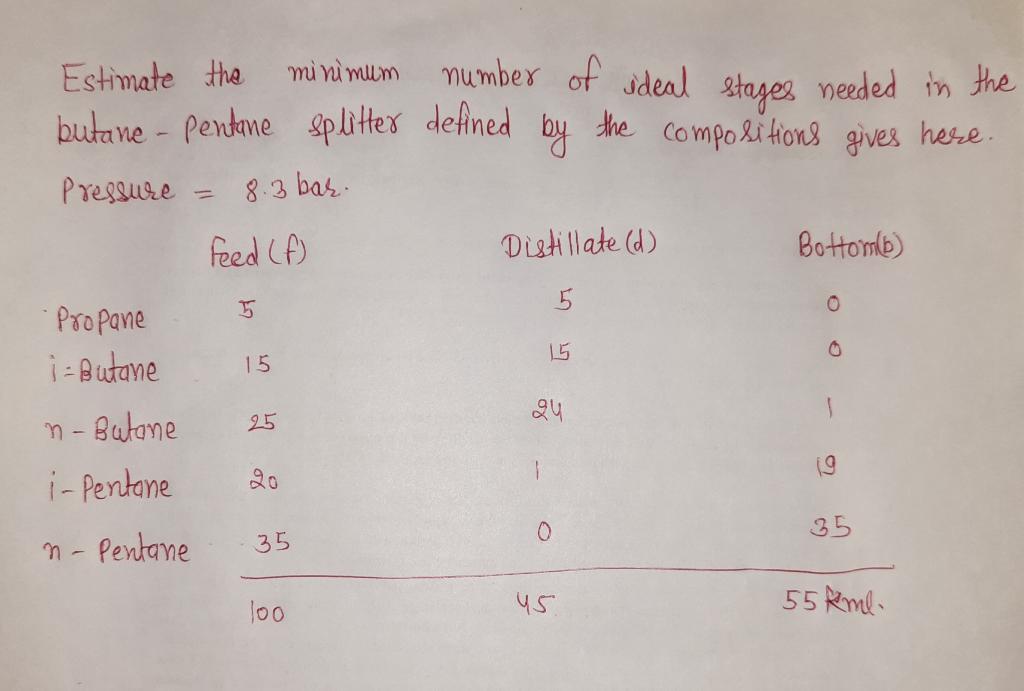 Estimate the minimum number of ideal stages needed in the
butane - Pentane splitter defined by the compositions gives here.
Pressure = 8.3 bar.
feed (f) Distillate (d) Bottom(b)
Propane 5 5 0
i-Butane 15 15 0
n-Butane 25 24 1
i-Pentane 20 1 19
n-Pentane 35 0 35
100 45 55 kml.